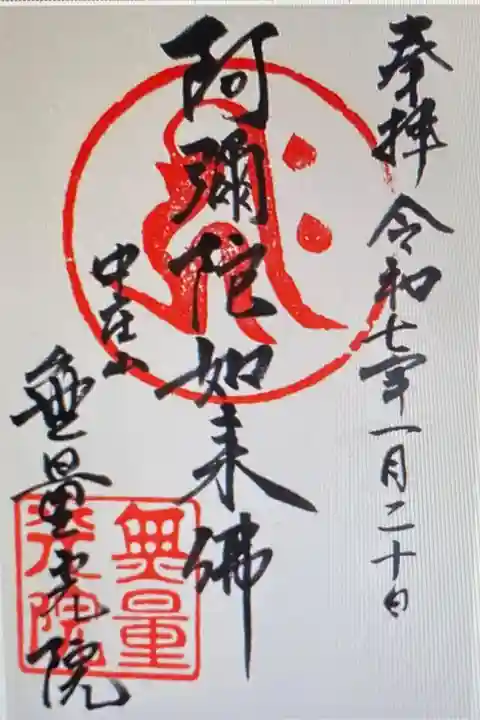 奉拝 令和七年一月二十日
阿彌陀如来佛
中庄山
無量光院
無量光院